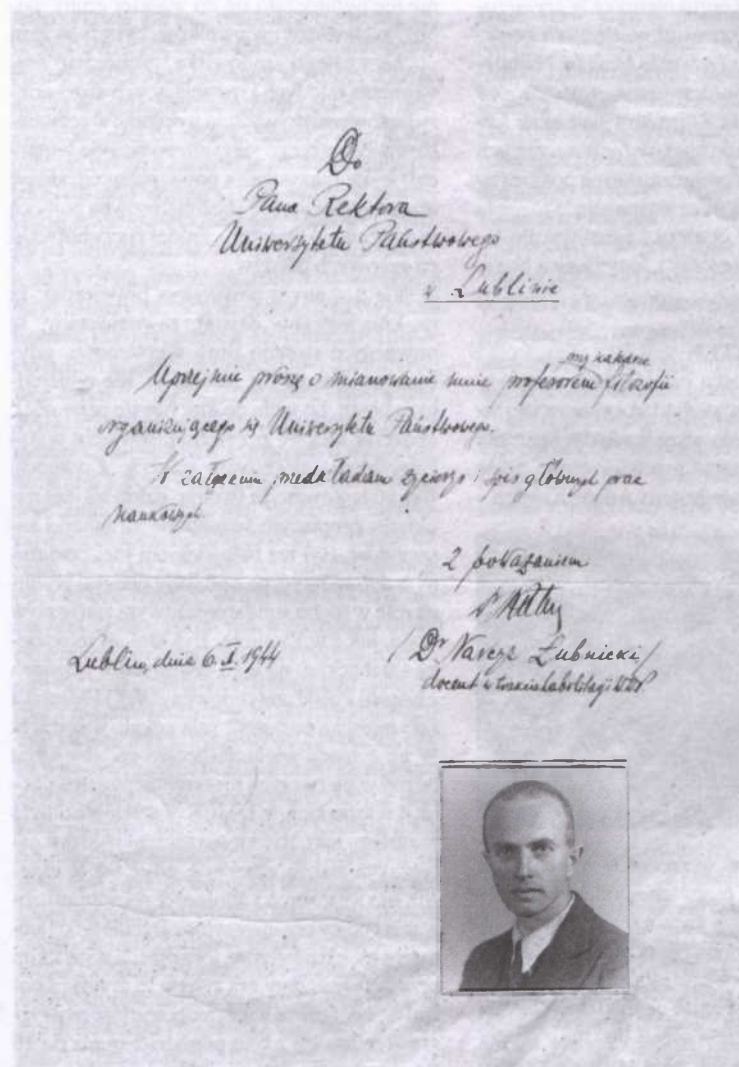 Do
Pana Rektora
Uniwersytetu Państwowego
w Lublinie
Uprzejmie proszę o mianowanie mnie profesorem filozofii
organizującego się Uniwersytetu Państwowego.
W załączeniu przedkładam życiorys i spis głównych prac
naukowych
Z poważaniem
Lublin, dnia 6. X. 1944
/ Dr Narcyz Łubnicki /
docent